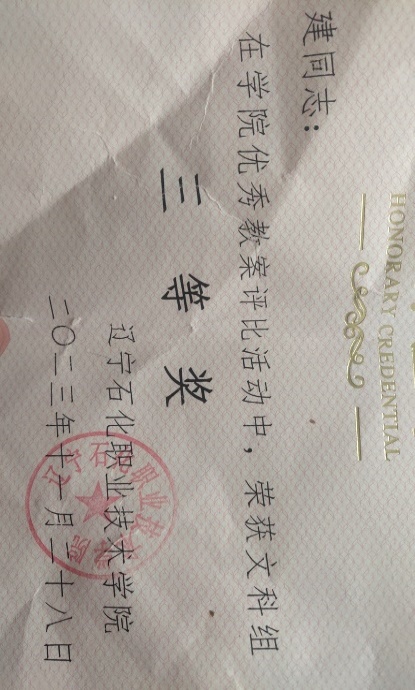 HONORARY CREDENTIAL
建同志：
在学院优秀教案评比活动中，荣获文科组
三等奖
辽宁石化职业技术学院
二〇二三年十一月二十八日
辽宁石化职业技术学院